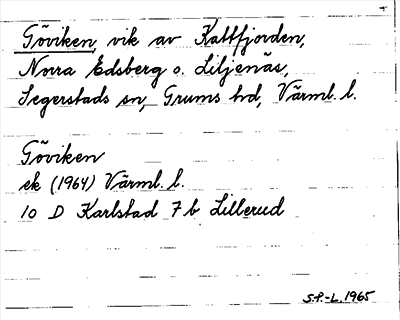 Göviken, vik av Kattfjorden,
Norra Edsberg o. Liljenäs,
Segerstads sn, Grums hd, Värml. l.
Göviken
ek (1964) Värml. l.
10 D Karlstad 7 b Lillerud
S.P.-L. 1965